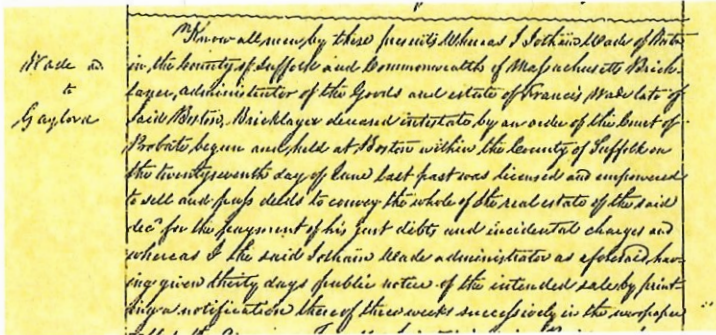 Wade adm
to
Gaylord
Know all men by these presents Whereas I Jotham Wade of Boston
in the County of Suffolk and Commonwealth of Massachusetts Brick-
layer, administrator of the Goods and estate of Francis Wade late of
said Boston, Bricklayer deceased intestate by an order of the Court of
Probate begun and held at Boston within the County of Suffolk on
the twenty seventh day of June last past was licensed and empowered
to sell and pass deeds to convey the whole of the real estate of the said
decd for the payment of his just debts and incidental charges and
whereas I the said Jotham Wade administrator as aforesaid, hav-
ing given thirty days public notice of the intended sale by print
ing a notification thereof three weeks successively in the newspaper